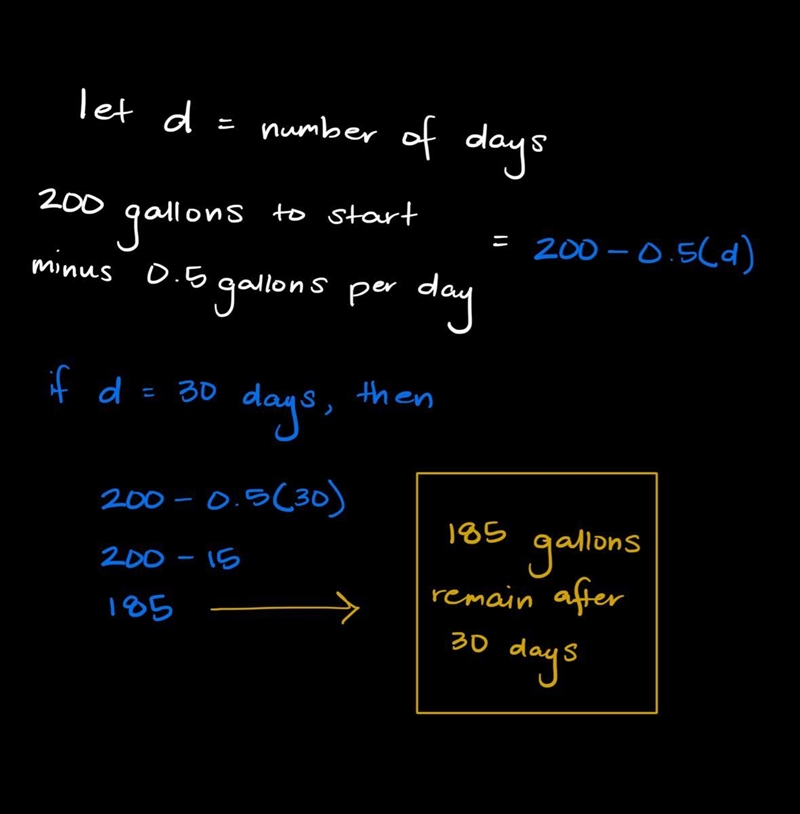 let d = number of days
200 gallons to start
minus 0.5 gallons per day
= 200 - 0.5(d)
if d = 30 days, then
200 - 0.5(30)
200 - 15
185
185 gallons
remain after
30 days